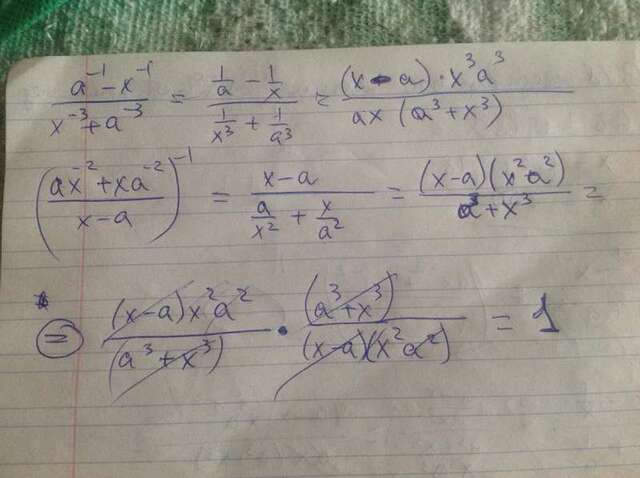 \frac{a^{-1} - x^{-1}}{x^{-3} + a^{-3}} = \frac{\frac{1}{a} - \frac{1}{x}}{\frac{1}{x^3} + \frac{1}{a^3}} = \frac{(x - a) \cdot x^3 a^3}{ax (a^3 + x^3)}
\left(\frac{ax^{-2} + xa^{-2}}{x - a}\right)^{-1} = \frac{x - a}{\frac{a}{x^2} + \frac{x}{a^2}} = \frac{(x - a)(x^2 a^2)}{a^3 + x^3} =
= \frac{(x - a) x^2 a^2}{(a^3 + x^3)} \cdot \frac{(a^3 + x^3)}{(x - a)(x^2 a^2)} = 1